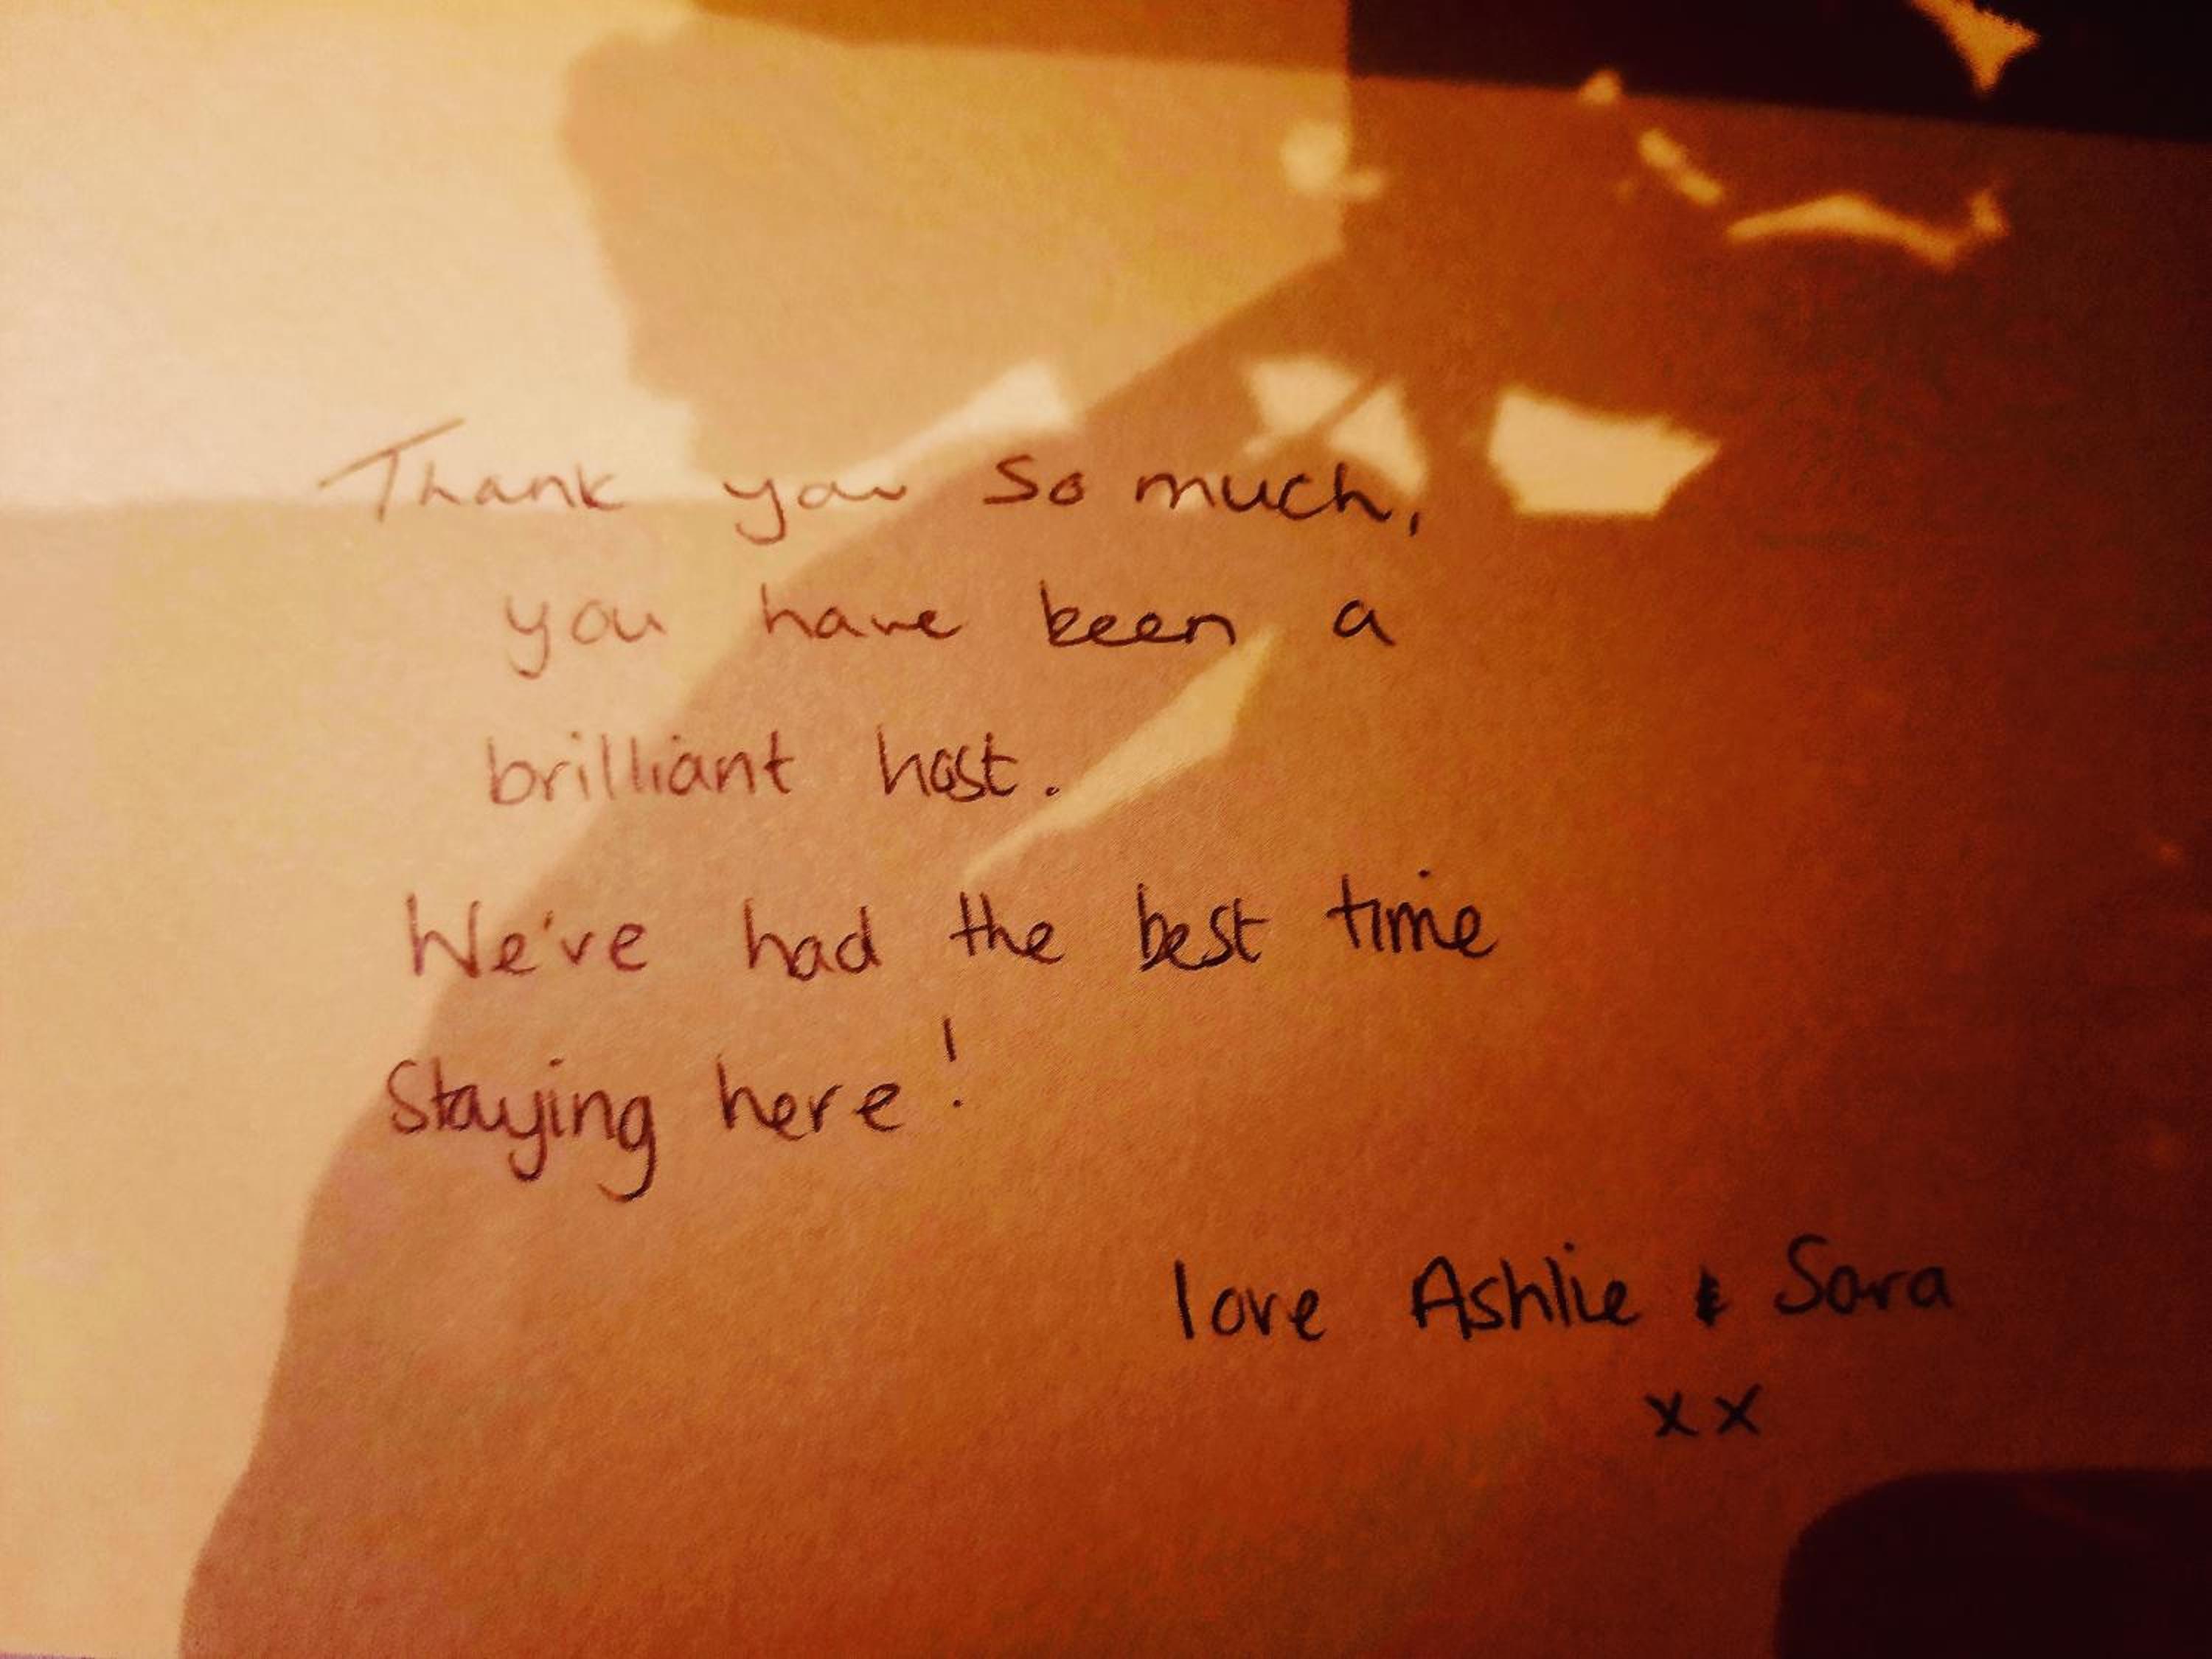 Thank you so much,
you have been a
brilliant host.
We've had the best time
Staying here!
love Ashlie & Sara
xx